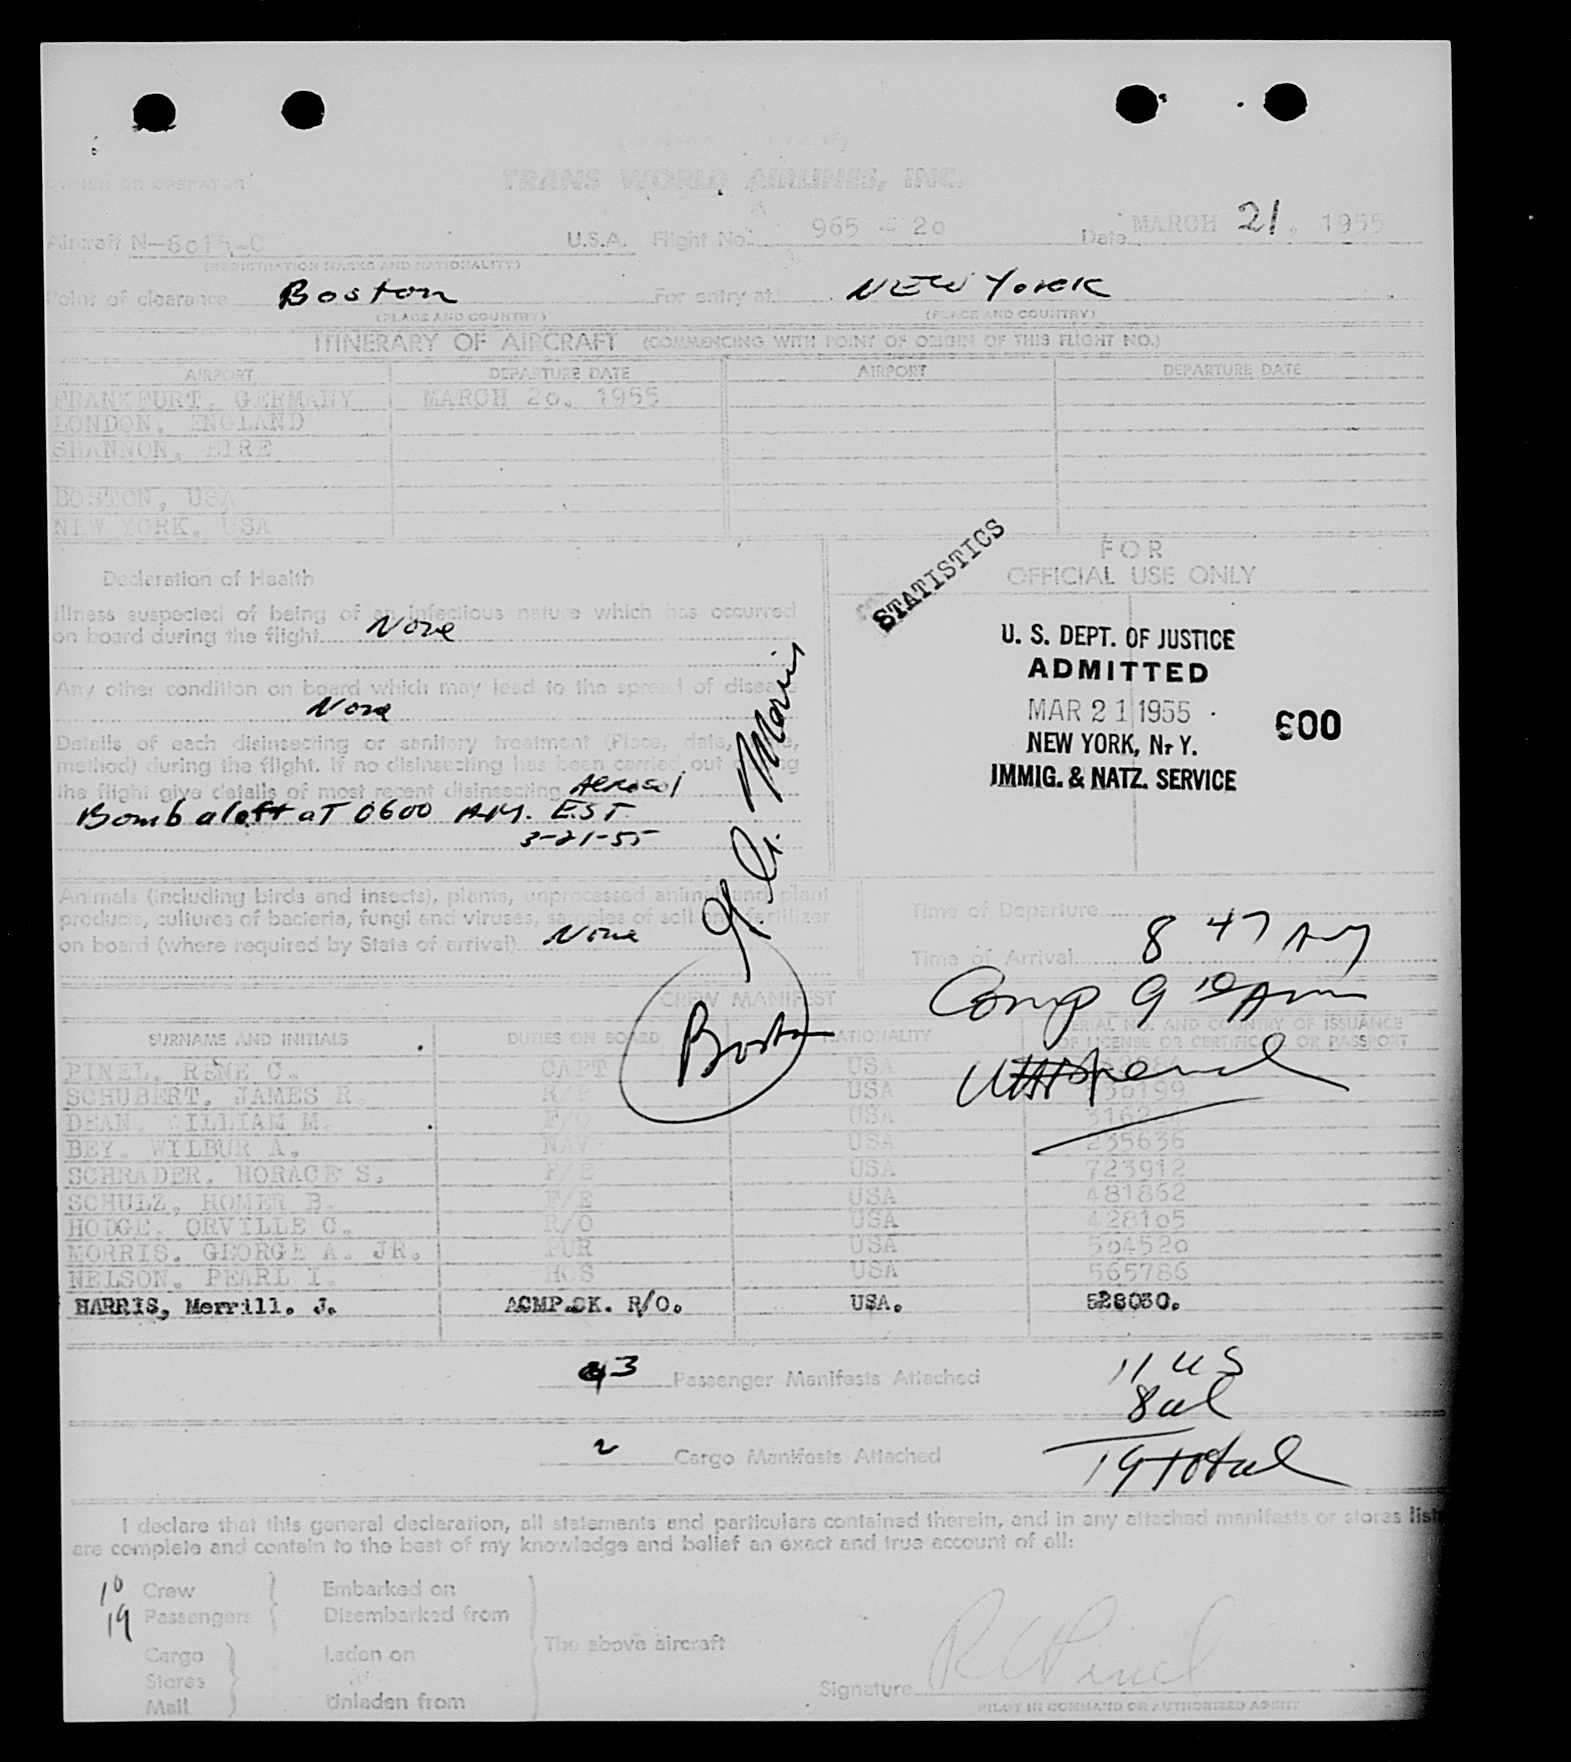 OWNER OR OPERATOR TRANS WORLD AIRLINES, INC.
Aircraft N-6015-C U.S.A. Flight No. 965 - 20 Date MARCH 21, 1955
(REGISTRATION MARKS AND NATIONALITY)
Point of clearance Boston For entry at New York
(PLACE AND COUNTRY) (PLACE AND COUNTRY)
ITINERARY OF AIRCRAFT (COMMENCING WITH POINT OF ORIGIN OF THIS FLIGHT NO.)
AIRPORT DEPARTURE DATE AIRPORT DEPARTURE DATE
FRANKFURT, GERMANY MARCH 20, 1955
LONDON, ENGLAND
SHANNON, EIRE
BOSTON, USA
NEW YORK, USA
STATISTICS
FOR
OFFICIAL USE ONLY
Declaration of Health
Illness suspected of being of an infectious nature which has occurred
on board during the flight None
Any other condition on board which may lead to the spread of disease
None
Details of each disinsecting or sanitary treatment (Place, date, time,
method) during the flight. If no disinsecting has been carried out during
the flight give details of most recent disinsecting Aerosol
Bomb aloft at 0600 A.M. E.S.T.
3-21-55
U. S. DEPT. OF JUSTICE
ADMITTED
MAR 21 1955
NEW YORK, N. Y.
IMMIG. & NATZ. SERVICE
600
G. A. Morris
Animals (including birds and insects), plants, unprocessed animal and plant
products, cultures of bacteria, fungi and viruses, samples of soil and fertilizer
on board (where required by State of arrival) None
Time of Departure
Time of Arrival 8 47 AM
Comp 9 10 Am
Boston
CREW MANIFEST
SURNAME AND INITIALS DUTIES ON BOARD NATIONALITY SERIAL NO. AND COUNTRY OF ISSUANCE
OF LICENSE OR CERTIFICATE OR PASSPORT
PINEL, RENE C. CAPT USA
SCHUBERT, JAMES R. USA
DEAN, WILLIAM M. F/O USA
BEY, WILBUR A. NAV USA 235636
SCHRADER, HORACE S. F/E USA 723912
SCHULZ, HOMER B. F/E USA 481862
HODGE, ORVILLE C. R/O USA 428105
MORRIS, GEORGE A. JR. PUR USA 504520
NELSON, PEARL I. HOS USA 565786
HARRIS, Merrill. J. ACMP.CK. R/O. USA. 528030.
3 Passenger Manifests Attached
11 US
8 al
2 Cargo Manifests Attached
19 total
I declare that this general declaration, all statements and particulars contained therein, and in any attached manifests or stores list
are complete and contain to the best of my knowledge and belief an exact and true account of all:
10 Crew Embarked on
19 Passengers Disembarked from
The above aircraft
Cargo Laden on
Stores
Mail Unladen from
Signature R C Pinel
PILOT IN COMMAND OR AUTHORIZED AGENT